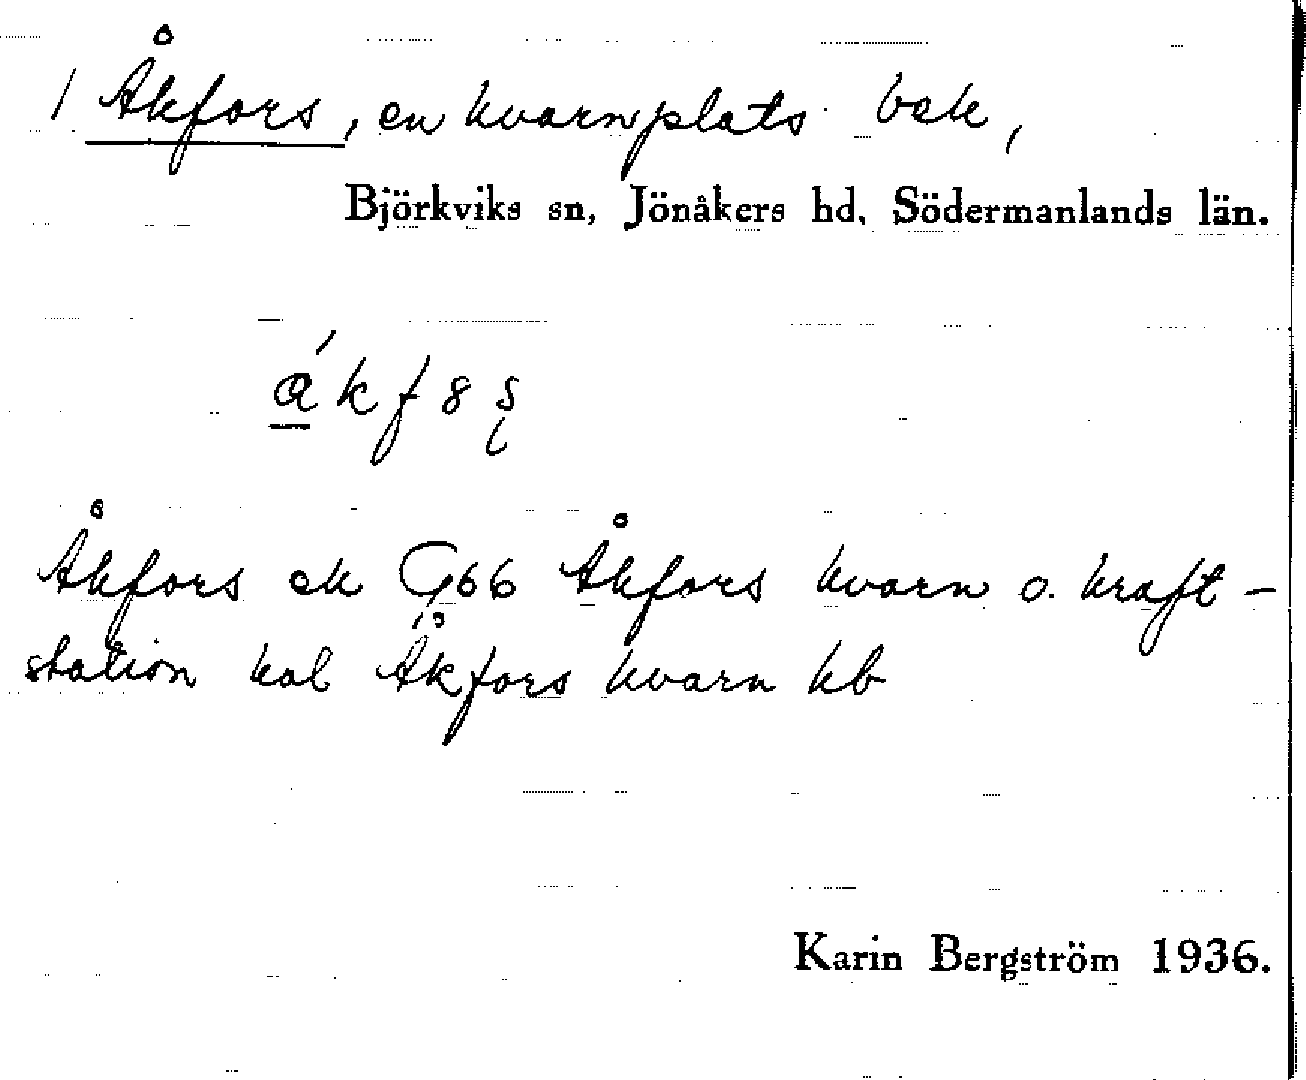 1 Åkfors, en kvarnplats bek,
Björkviks sn, Jönåkers hd, Södermanlands län.
Åkfors ek G66 Åkfors kvarn o. kraft-
station kal Åkfors kvarn kb
Karin Bergström 1936.